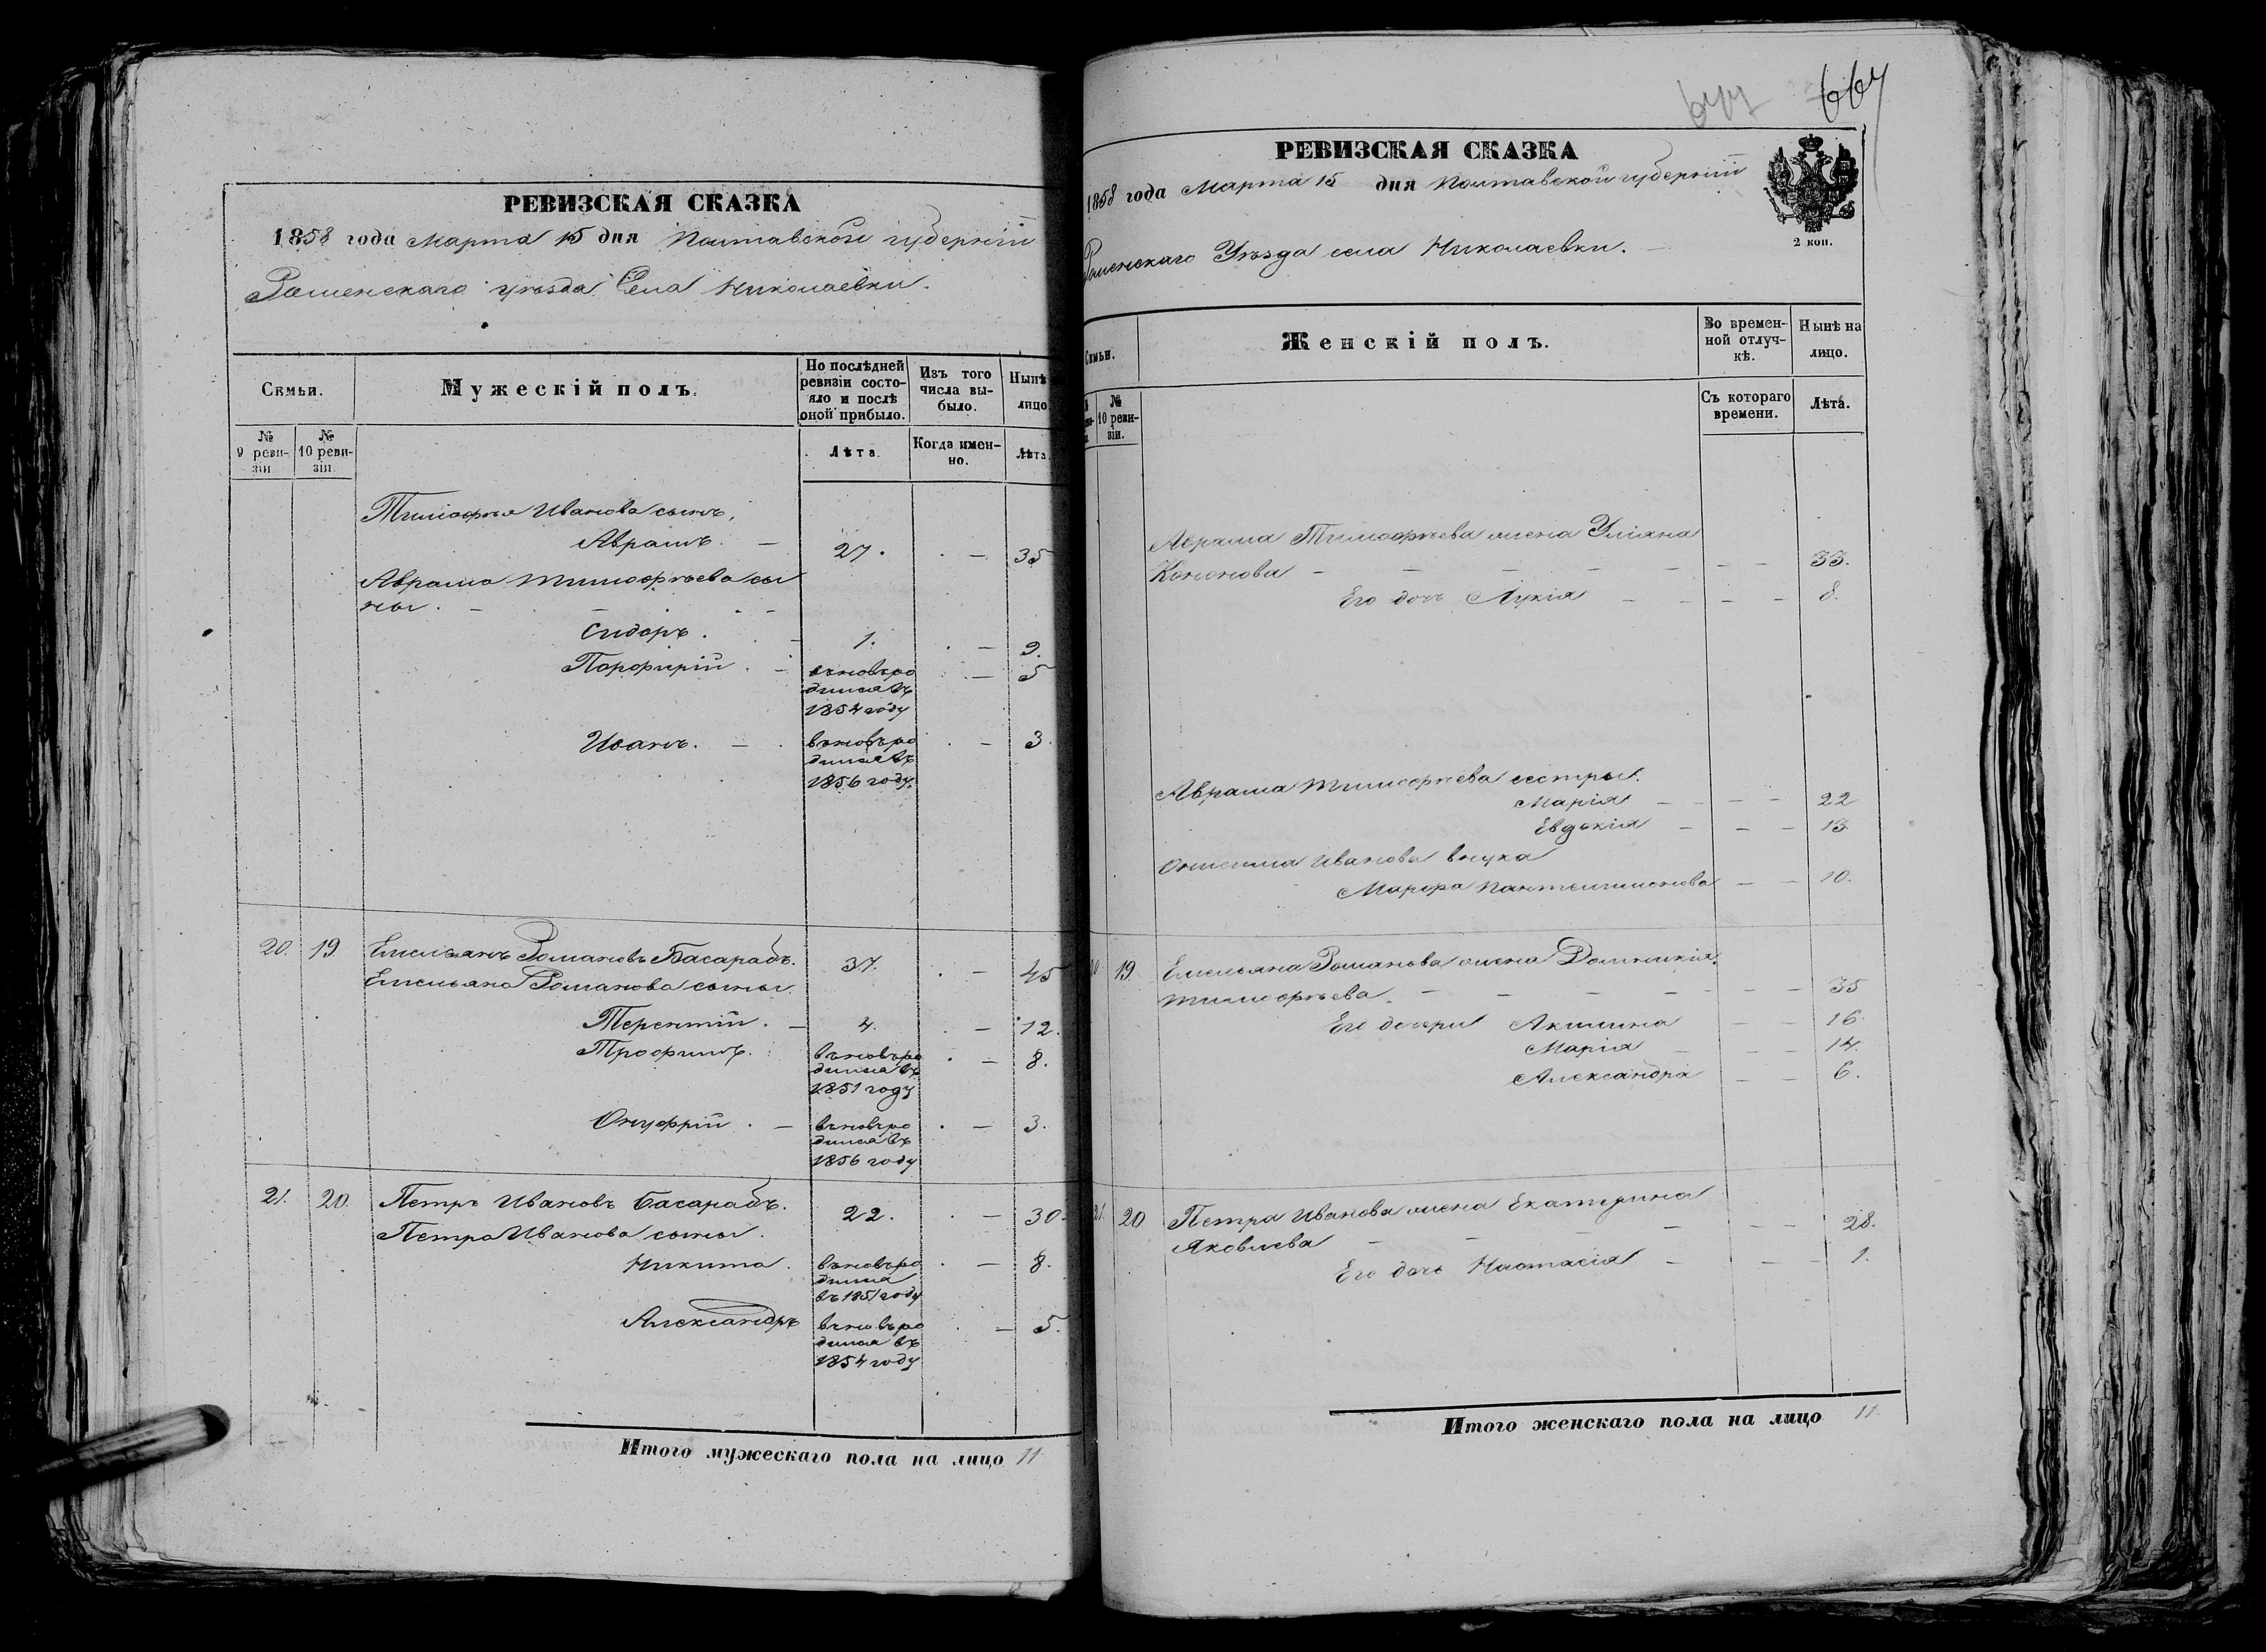 РЕВИЗСКАЯ СКАЗКА
1858 года Марта 15 дня Полтавской губерніи
Роменскаго уѣзда Села Николаевки.
Семьи.
Мужескій полъ.
По послѣдней ревизіи состояло и послѣ оной прибыло.
Изъ того числа выбыло.
Нынѣ
лицо
№ 9 ревизіи.
№ 10 ревизіи.
Лѣта.
Когда именно.
Лѣта
Тимофея Иванова сынъ,
Аврамъ. 27. 35
Аврама Тимофѣева сы
ны.
Сидоръ. 1. 9.
Порфирій. вновь ро 5
дился въ
1854 году
Иванъ. вновь ро 3.
дился въ
1856 году.
20. 19. Емельянъ Романовъ Басарабъ. 37. 45
Емельяна Романова сыны.
Терентій. 4. 12.
Трофимъ. вновь ро 8.
дился въ
1851 году
Онуфрій. вновь ро 3.
дился въ
1856 году
21. 20. Петръ Ивановъ Басарабъ. 22. 30.
Петра Иванова сыны.
Никита. вновь ро 8.
дился
въ 1851 году
Александръ вновь ро 5.
дился въ
1854 году
Итого мужескаго пола на лицо 11.
664
РЕВИЗСКАЯ СКАЗКА
1858 года Марта 15 дня Полтавской губерніи
Роменскаго Уѣзда села Николаевки.
2 коп.
Семьи.
Женскій полъ.
Во временной отлучкѣ.
Нынѣ на лицо.
№ 10 ревизіи.
Съ котораго времени.
Лѣта.
Аврама Тимофѣева жена Уліяна
Кононова 33.
Его дочь Лукія 8.
Аврама Тимофѣева сестры.
Марія 22
Евдокія 13.
Онисима Иванова внука
Марфа Пантелимонова 10.
19. Емельяна Романова жена Домникія
Тимофѣева. 35
Его дочери Акилина 16.
Марія 14.
Александра 6.
21. 20 Петра Иванова жена Екатерина
Яковлева 28.
Его дочь Настасія 1.
Итого женскаго пола на лицо 11.